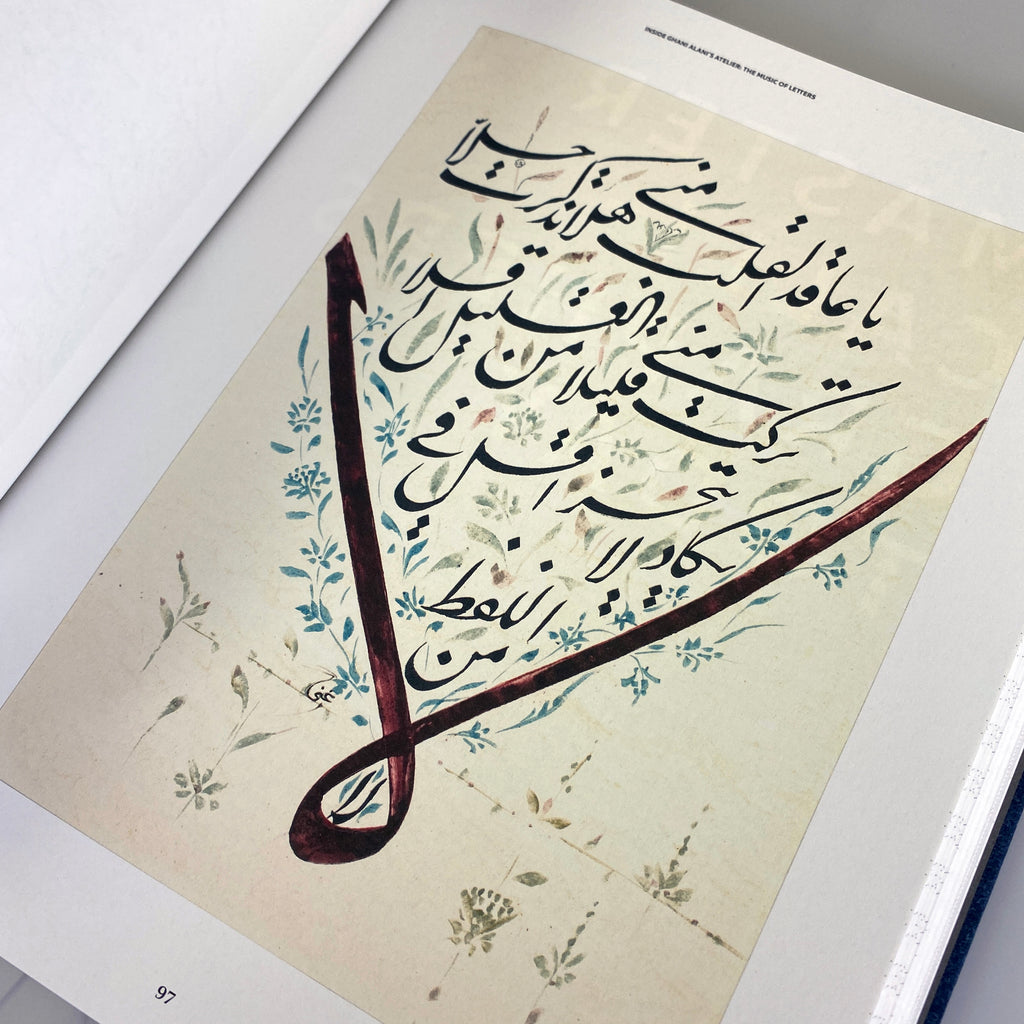 INSIDE GHANI ALANI'S ATELIER: THE MUSIC OF LETTERS
يا عاقد القلب مني هلا تذكرت حلاً
تركت مني قليلا من القليل اقلا
يكاد لا يتجزا اقل في
اللفظ
من
لا
غني
97